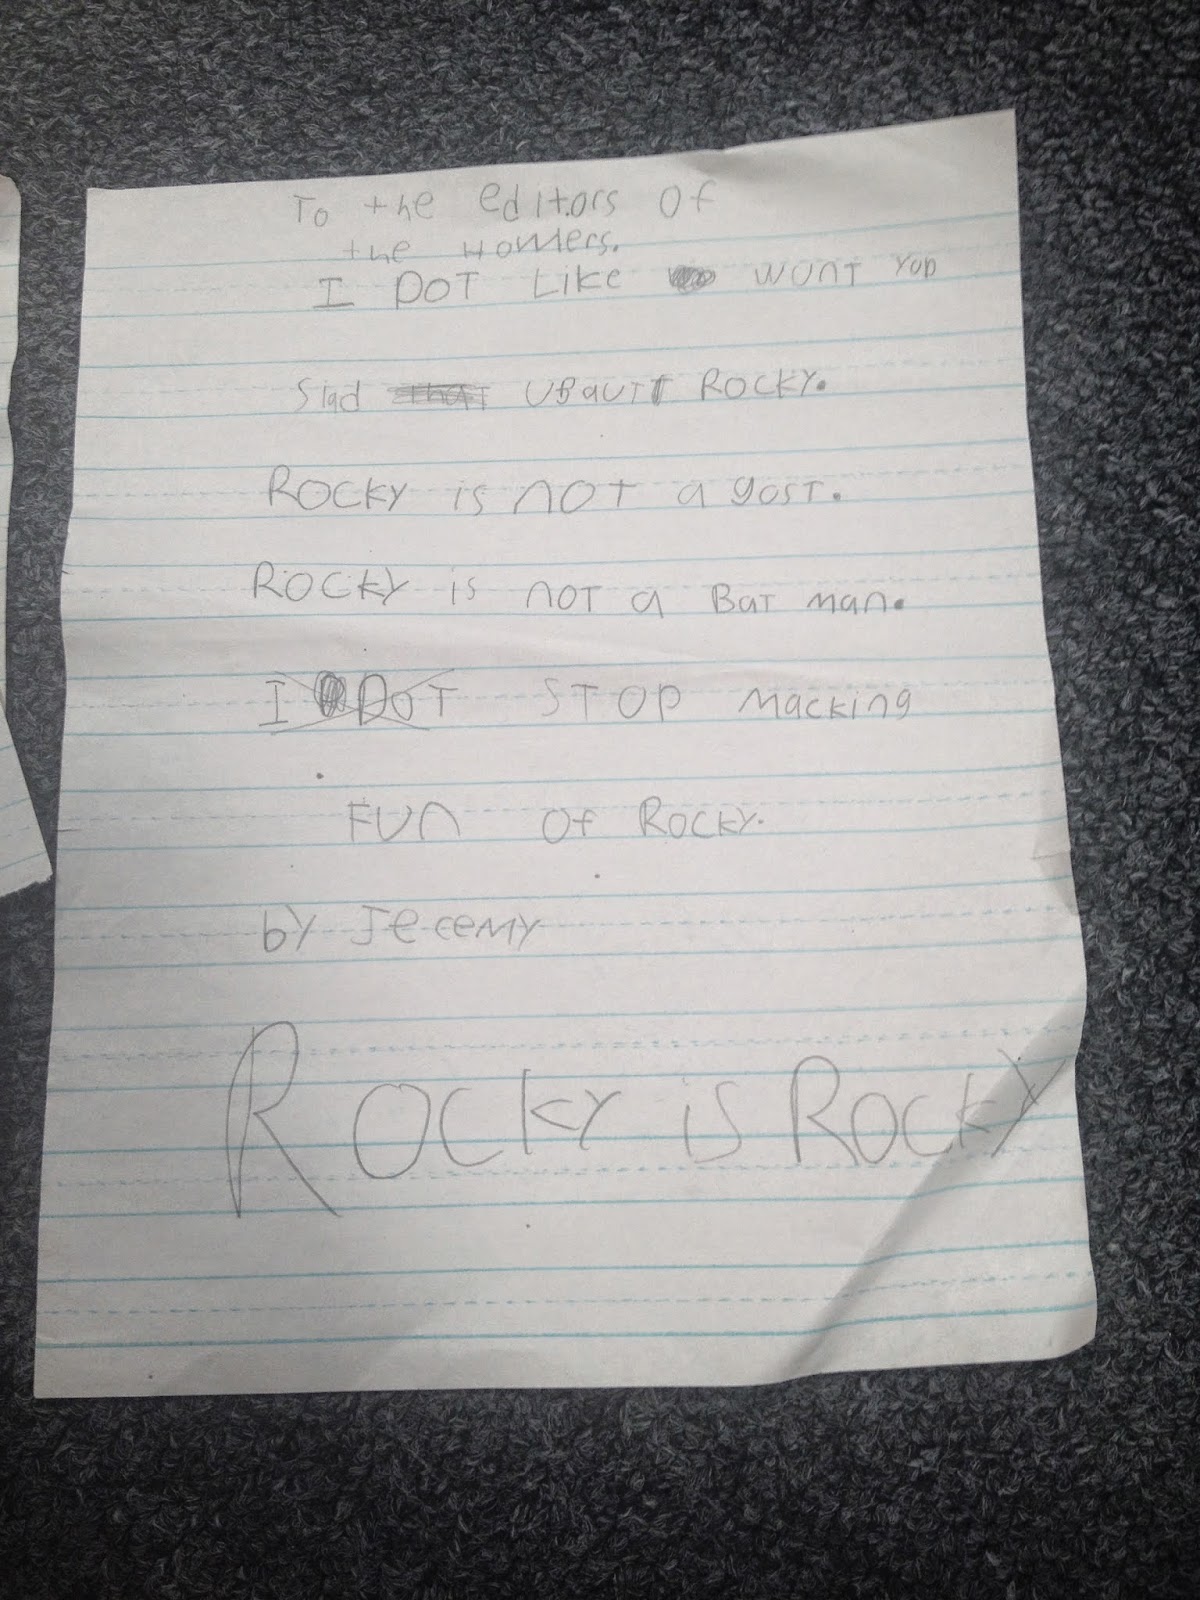 To the editors of
the Howlers.
I DOT LIKE WUNT YOU
Slad UBAUT ROCKY.
ROCKY is NOT a gost.
ROCKY is NOT a Bat man.
I DOT STOP Macking
FUN Of ROCKY.
by Jeremy
ROCKY is ROCKY